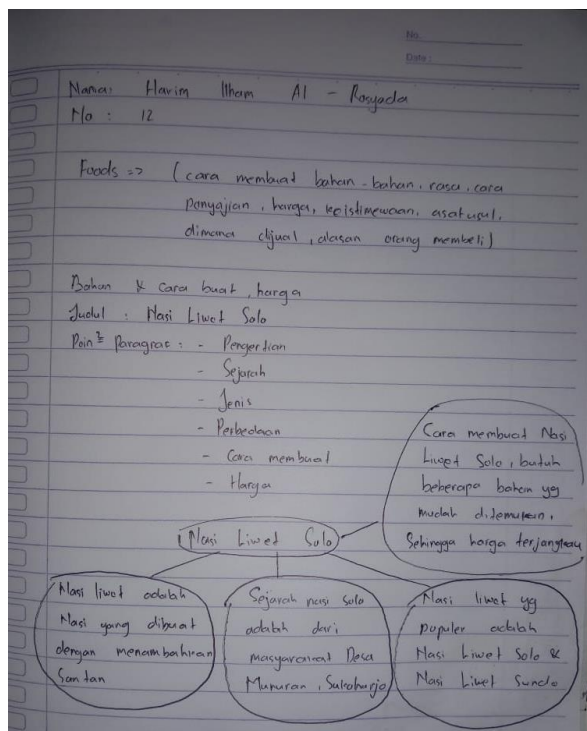 No.
Date :
Nama: Harim Ilham Al - Rosyada
No : 12
Foods => (cara membuat bahan-bahan, rasa, cara
penyajian, harga, keistimewaan, asal usul,
dimana dijual, alasan orang membeli)
Bahan & cara buat, harga
Judul : Nasi Liwet Solo
Poin² Paragraf : - Pengertian
- Sejarah
- Jenis
- Perbedaan
- Cara membuat
- Harga
Cara membuat Nasi
Liwet Solo, butuh
beberapa bahan yg
mudah ditemukan,
Sehingga harga terjangkau
Nasi Liwet Solo
Nasi liwet adalah
Nasi yang dibuat
dengan menambahkan
Santan
Sejarah nasi Solo
adalah dari
masyarakat Desa
Menuran, Sukoharjo
Nasi liwet yg
populer adalah
Nasi Liwet Solo &
Nasi Liwet Sunda